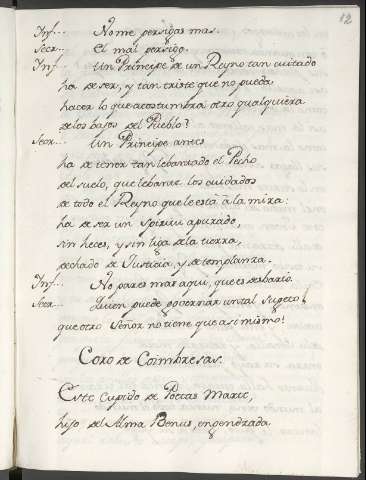 12
Inf... No me persigas mas.
Secr... El mal persigo.
Inf... Un Principe de un Reyno tan cuitado
ha de ser, y tan triste que no pueda
hacer lo que acostumbra otro qualquiera
de los bajos del Pueblo?
Secr... Un Principe antes
ha de tener tan lebantado el Pecho
del suelo, que lebante los cuidados
de todo el Reyno que le està à la mira:
ha de ser un spiritu apurado,
sin heces, y sin liga de la tierra,
dechado de Justicia, y de templanza.
Inf... No pares mas aqui, que es desbario.
Secr... Quien puede governar un tal sugeto,
que otro Señor no tiene que asi mismo!
Coro de Coimbresas.
Este Cupido de Poetas Marte,
hijo del Alma Benus, engendrada